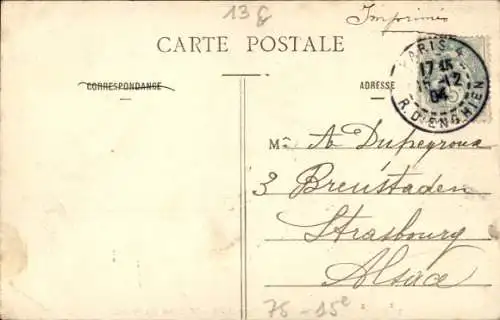 13 g
Imprimés
CARTE POSTALE
CORRESPONDANCE
ADRESSE
PARIS 4
17 45
15 -12
04
R. D'ENGHIEN
5
Mr A Dupeyroux
3 Breustaden
Strasbourg
Alsace
75-15e